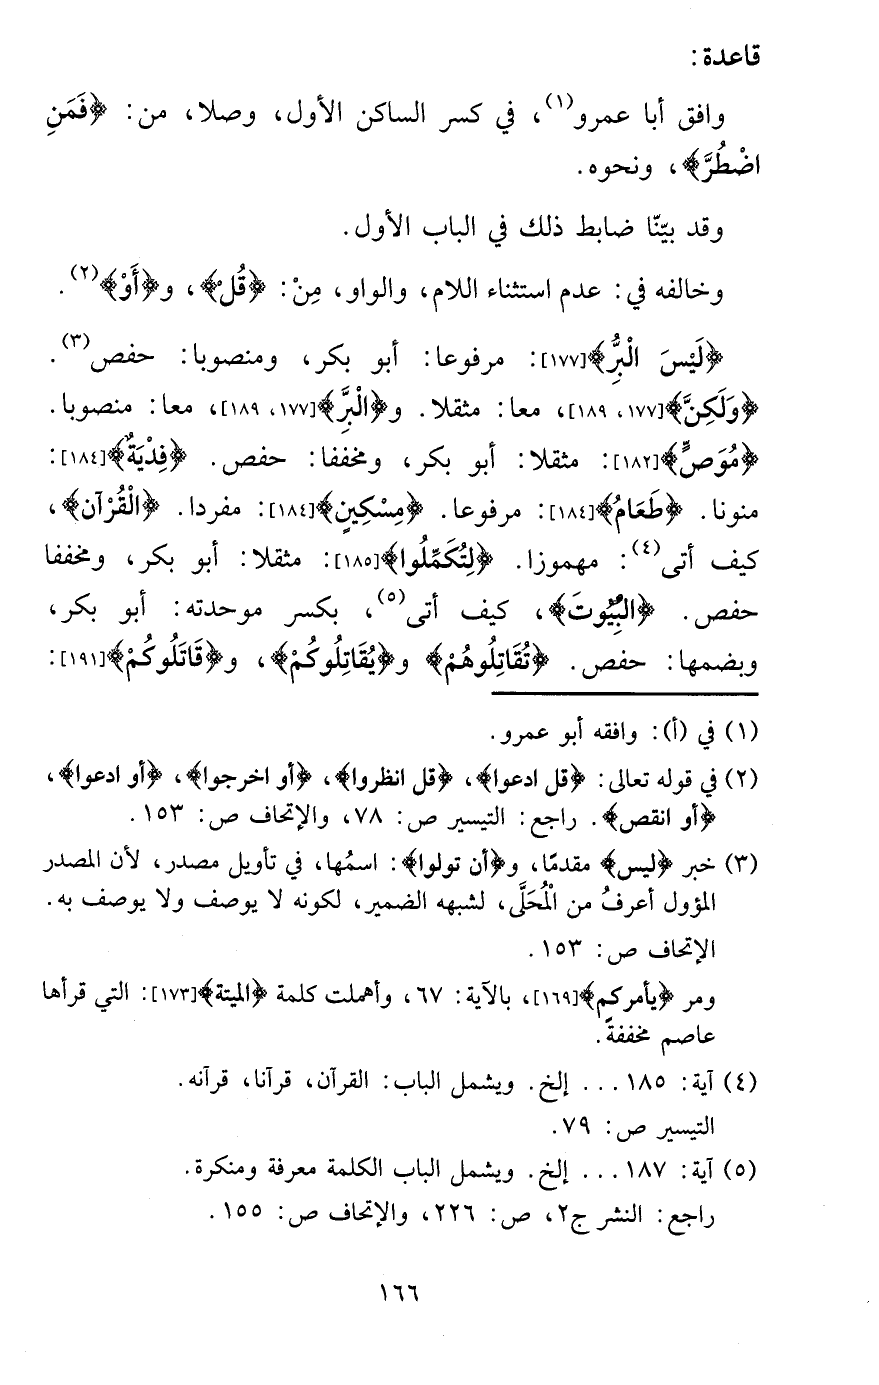 قاعدة:
وافق أبا عمرو(١)، في كسر الساكن الأول، وصلا، من: ﴿فَمَنِ
اضْطُرَّ﴾، ونحوه.
وقد بيّنّا ضابط ذلك في الباب الأول.
وخالفه في: عدم استثناء اللام، والواو، مِنْ: ﴿قُلْ﴾، و﴿أَوْ﴾(٢).
﴿لَيْسَ الْبِرُّ﴾[١٧٧]: مرفوعا: أبو بكر، ومنصوبا: حفص(٣).
﴿وَلَكِنَّ﴾[١٧٧، ١٨٩]، معا: مثقلا. و﴿الْبِرَّ﴾[١٧٧، ١٨٩]، معا: منصوبا.
﴿مُوَصٍّ﴾[١٨٢]: مثقلا: أبو بكر، ومخففا: حفص. ﴿فِدْيَةٌ﴾[١٨٤]:
منونا. ﴿طَعَامُ﴾[١٨٤]: مرفوعا. ﴿مِسْكِينٍ﴾[١٨٤]: مفردا. ﴿الْقُرْآن﴾،
كيف أتى(٤): مهموزا. ﴿لِتُكَمِّلُوا﴾[١٨٥]: مثقلا: أبو بكر، ومخففا
حفص. ﴿الْبِيُوتَ﴾، كيف أتى(٥)، بكسر موحدته: أبو بكر،
وبضمها: حفص. ﴿تُقَاتِلُوهُمْ﴾ و﴿يُقَاتِلُوكُمْ﴾، و﴿قَاتَلُوكُمْ﴾[١٩١]:
(١) في (أ): وافقه أبو عمرو.
(٢) في قوله تعالى: ﴿قل ادعوا﴾، ﴿قل انظروا﴾، ﴿أو اخرجوا﴾، ﴿أو ادعوا﴾،
﴿أو انقص﴾. راجع: التيسير ص: ٧٨، والإتحاف ص: ١٥٣.
(٣) خبر ﴿ليس﴾ مقدمًا، و﴿أن تولوا﴾: اسمُها، في تأويل مصدر، لأن المصدر
المؤول أعرفُ من الْمُحَلَّى، لشبهه الضمير، لكونه لا يوصف ولا يوصف به.
الإتحاف ص: ١٥٣.
ومر ﴿يأمركم﴾[١٦٩]، بالآية: ٦٧، وأهملت كلمة ﴿الميتة﴾[١٧٣]: التي قرأها
عاصم مخففةً.
(٤) آية: ١٨٥... إلخ. ويشمل الباب: القرآن، قرآنا، قرآنه.
التيسير ص: ٧٩.
(٥) آية: ١٨٧... إلخ. ويشمل الباب الكلمة معرفة ومنكرة.
راجع: النشر ج٢، ص: ٢٢٦، والإتحاف ص: ١٥٥.
١٦٦